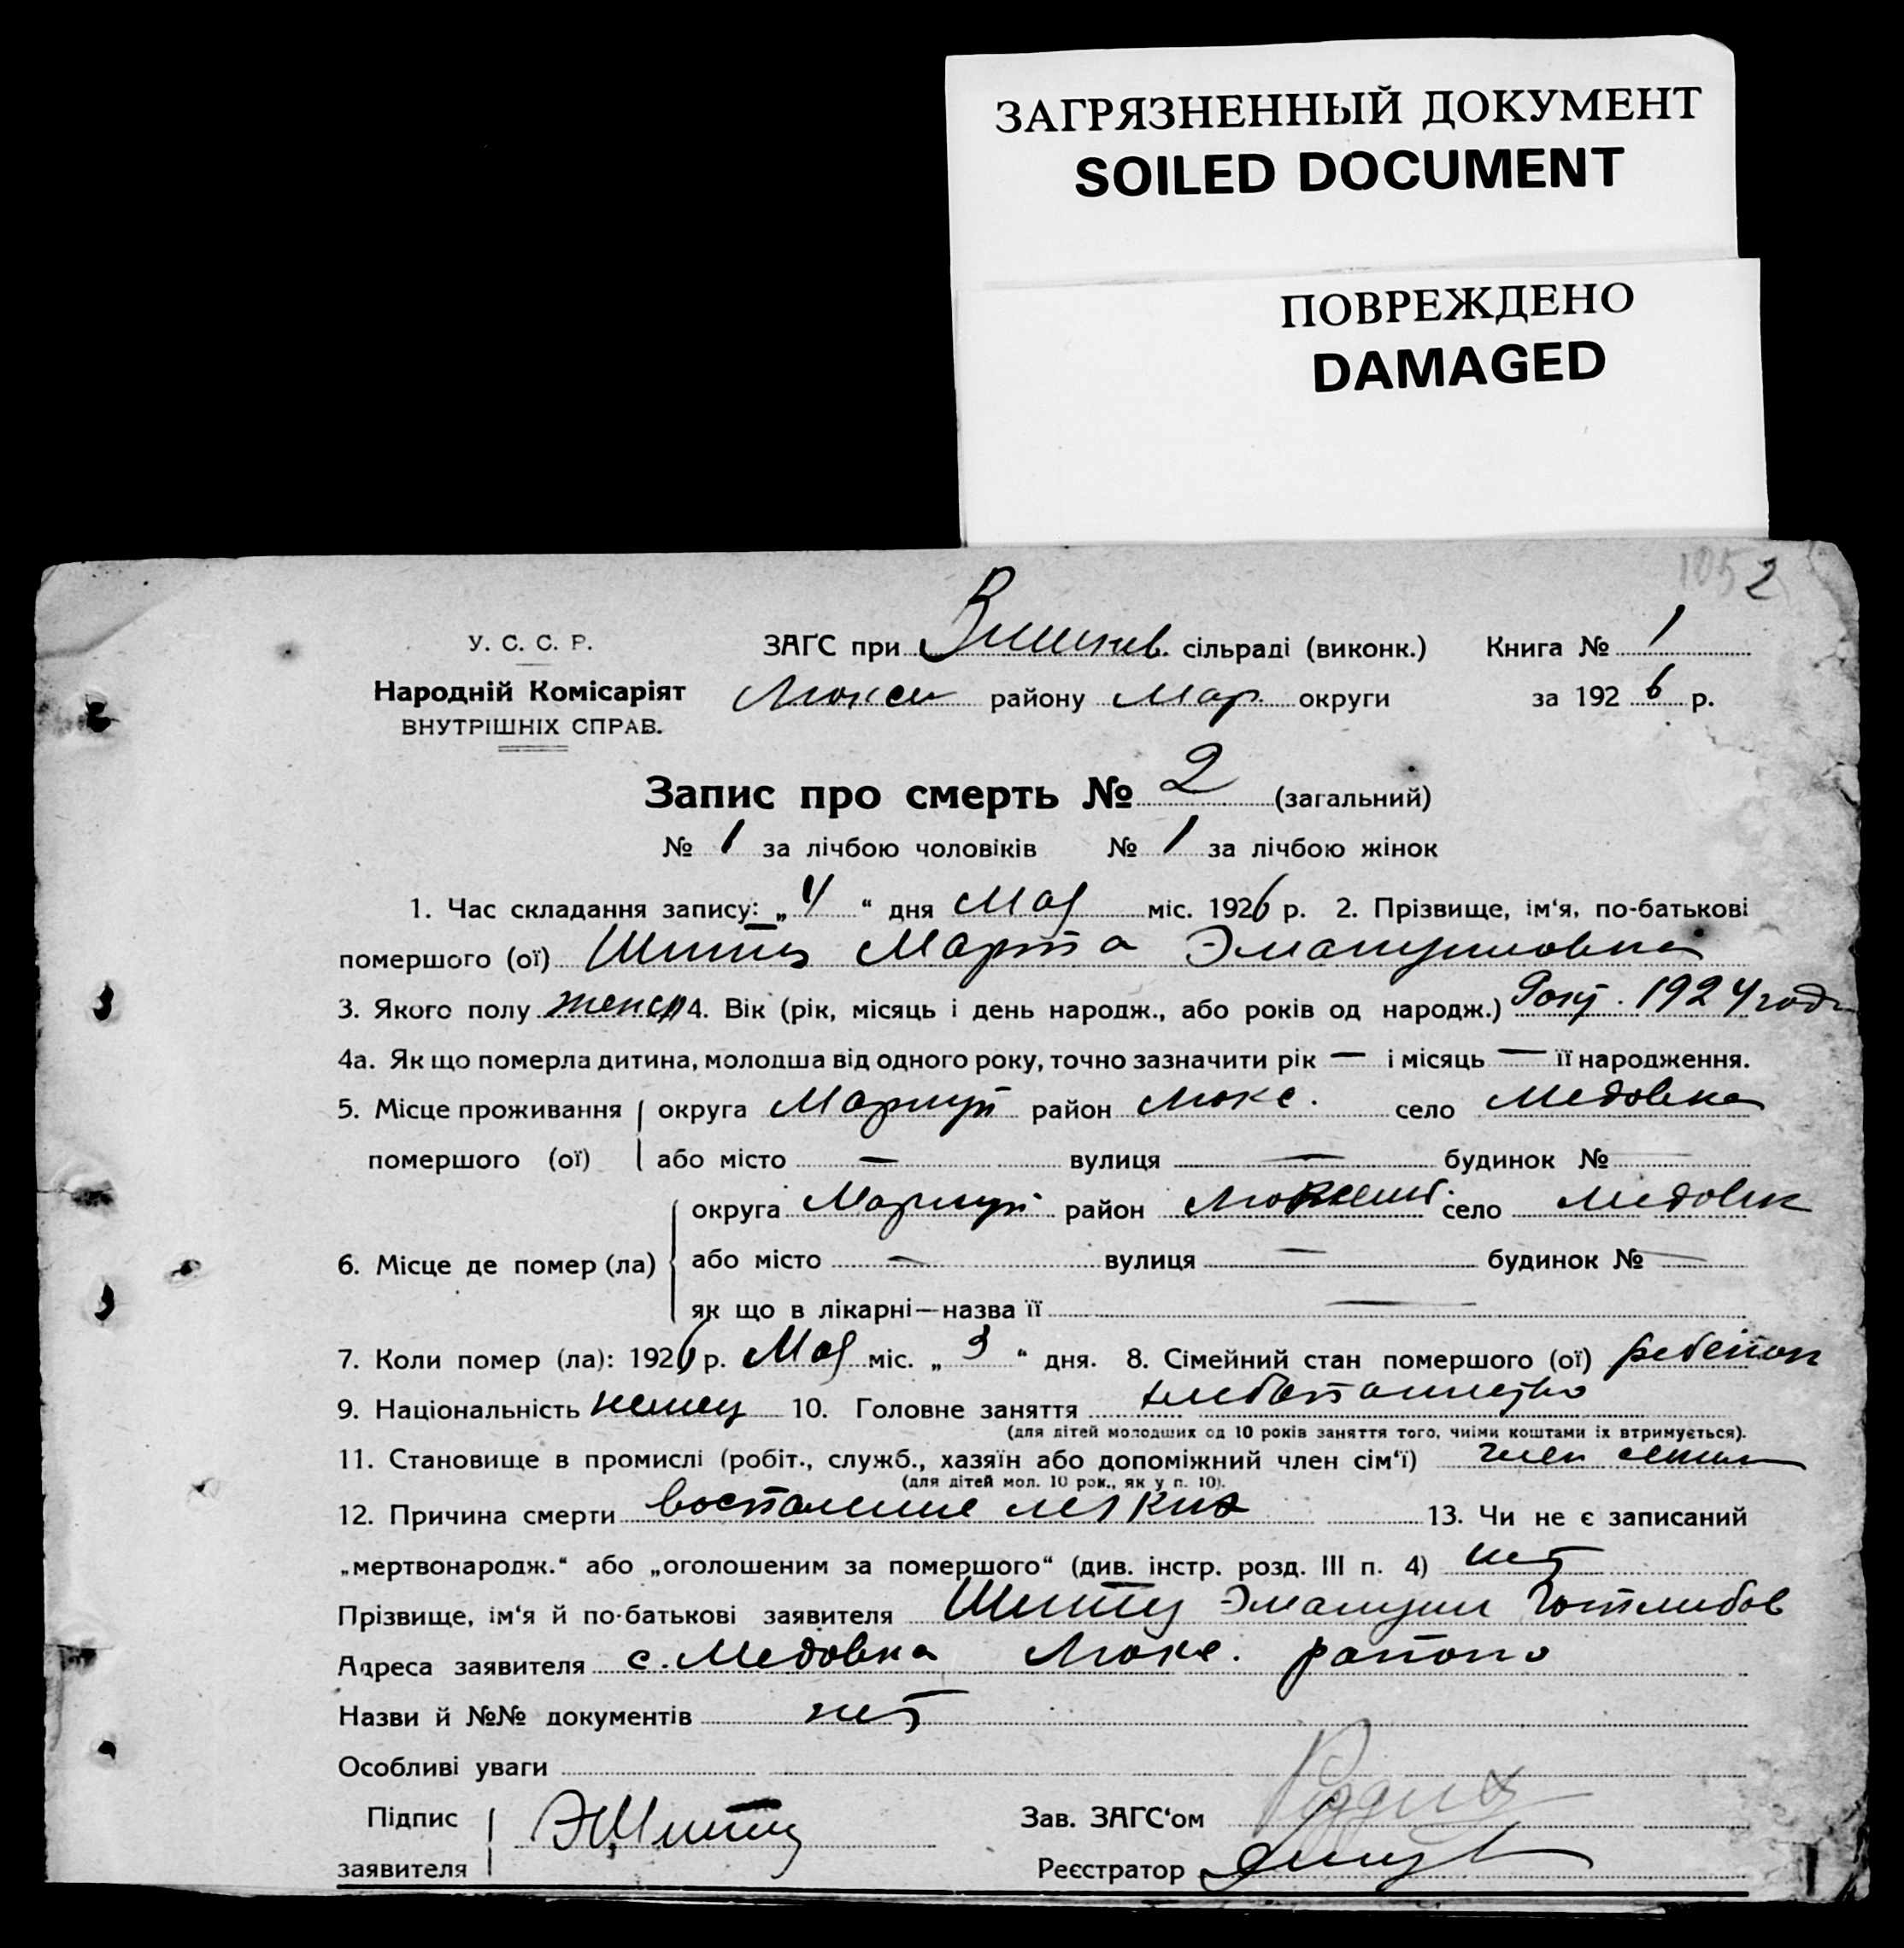 ЗАГРЯЗНЕННЫЙ ДОКУМЕНТ
SOILED DOCUMENT
ПОВРЕЖДЕНО
DAMAGED
1052
У. С. С. Р. ЗАГС при сільраді (виконк.) Книга № 1
Народній Комісаріят Люкс району Мар. округи за 1926 р.
ВНУТРІШНІХ СПРАВ.
Запис про смерть № 2 (загальний)
№ 1 за лічбою чоловіків № 1 за лічбою жінок
1. Час складання запису: „4“ дня Мая міс. 1926 р. 2. Прізвище, ім'я, по-батькові
помершого (ої) Шитц Марта Эмануиловна
3. Якого полу женск 4. Вік (рік, місяць і день народж., або років од народж.) 1924 года
4а. Як що померла дитина, молодша від одного року, точно зазначити рік — і місяць — її народження.
5. Місце проживання округа Мариуп район Люкс. село Медовка
помершого (ої) або місто — вулиця — будинок № —
округа Мариуп район село Медовк
6. Місце де помер (ла) або місто — вулиця — будинок № —
як що в лікарні—назва її —
7. Коли помер (ла): 1926 р. Мая міс. „3“ дня. 8. Сімейний стан помершого (ої) ребенок
9. Національність немец 10. Головне заняття хлебопашество
(для дітей молодших од 10 років заняття того, чиїми коштами їх втримується).
11. Становище в промислі (робіт., служб., хазяїн або допоміжний член сім'ї) член семьи
(для дітей мол. 10 рок., як у п. 10).
12. Причина смерти воспаление легких 13. Чи не є записаний
„мертвонародж.“ або „оголошеним за помершого“ (див. інстр. розд. III п. 4) нет
Прізвище, ім'я й по-батькові заявителя Шитц Эмануил Готлибов
Адреса заявителя с. Медовка Люкс. района
Назви й №№ документів нет
Особливі уваги
Підпис Э Шитц Зав. ЗАГС'ом
заявителя Реєстратор